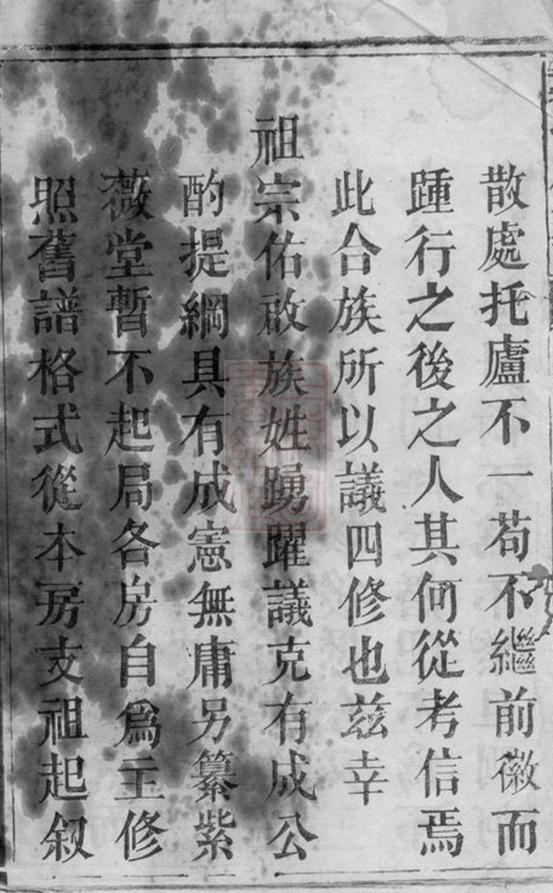 散處托廬不一苟不繼前徽而
踵行之後之人其何從考信焉
此合族所以議四修也茲幸
祖宗佑啟族姓踴躍議克有成公
酌提綱具有成憲無庸另纂紫
薇堂暫不起局各房自為主修
照舊譜格式從本房支祖起叙